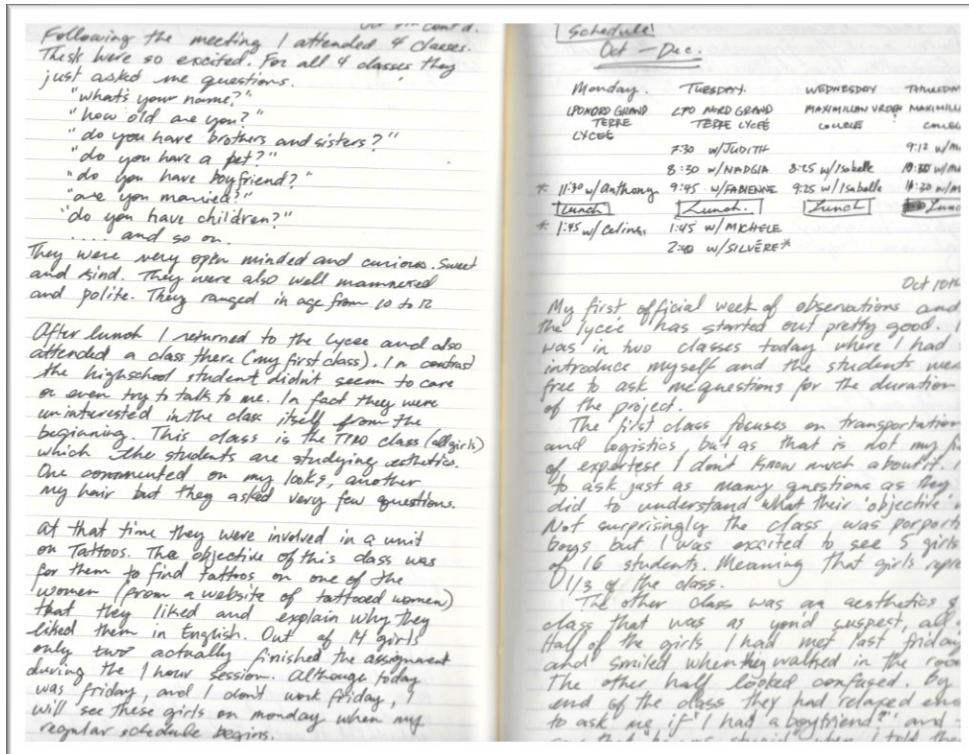 cont'd.
Following the meeting I attended 4 classes.
These were so excited. For all 4 classes they
just asked me questions.
"what's your name?"
"how old are you?"
"do you have brothers and sisters?"
"do you have a pet?"
"do you have boyfriend?"
"are you married?"
"do you have children?"
.... and so on.
They were very open minded and curious. Sweet
and kind. They were also well mannered
and polite. They ranged in age from 10 to 12
After lunch I returned to the lycee and also
attended a class there (my first class). In contrast
the highschool student didn't seem to care
or even try to talk to me. In fact they were
uninterested in the class itself from the
beginning. This class is the class (all girls)
which the students are studying esthetics.
One commented on my looks, another
my hair but they asked very few questions.
At that time they were involved in a unit
on Tattoos. The objective of this class was
for them to find tattoos on one of the
women (from a website of tattooed women)
that they liked and explain why they
liked them in English. Out of 14 girls
only two actually finished the assignment
during the 1 hour session. Although today
was friday, and I don't work friday, I
will see these girls on monday when my
regular schedule begins.
Schedule
Oct - Dec.
Monday. TUESDAY. WEDNESDAY THURSDAY
LPO NORD GRAND LPO NORD GRAND MAXIMILIAN MAXIMILI
TERRE TERRE LYCEÉ COLLEGE COLLEG
LYCEÉ
7:30 w/JUDITH 9:12 w/m
8:30 w/NADGIA 8:25 w/Isabelle 10:20 w/m
* 11:30 w/Anthony 9:45 w/FABIENNE 9:25 w/Isabelle w/m
Lunch Lunch. Lunch Lunc
* 1:45 w/Celine 1:45 w/MICHELE
2:40 w/SILVÉRE*
Oct 10th
My first official week of observations and
the lycée has started out pretty good. I
was in two classes today where I had
introduce myself and the students wer
free to ask me questions for the duration
of the project.
The first class focuses on transportation
and logistics, but as that is not my fi
of expertese I don't know much about it. I
to ask just as many questions as they
did to understand what their 'objective'
Not surprisingly the class, was porporti
boys but I was excited to see 5 girls
of 16 students. Meaning that girls repre
1/3 of the class.
The other class was an aesthetics
class that was as you'd suspect, all
Half of the girls I had met last friday
and smiled when they walked in the roo
The other half looked confused. By
end of the class they had relaxed eno
to ask me if "I had a boyfriend?" and
when I told them